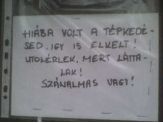 HIÁBA VOLT A TÉPKEDÉ-
SED. IGY IS ELKELT!
UTOLÉRLEK, MERT LÁTTA-
LAK!
SZÁNALMAS VAGY!